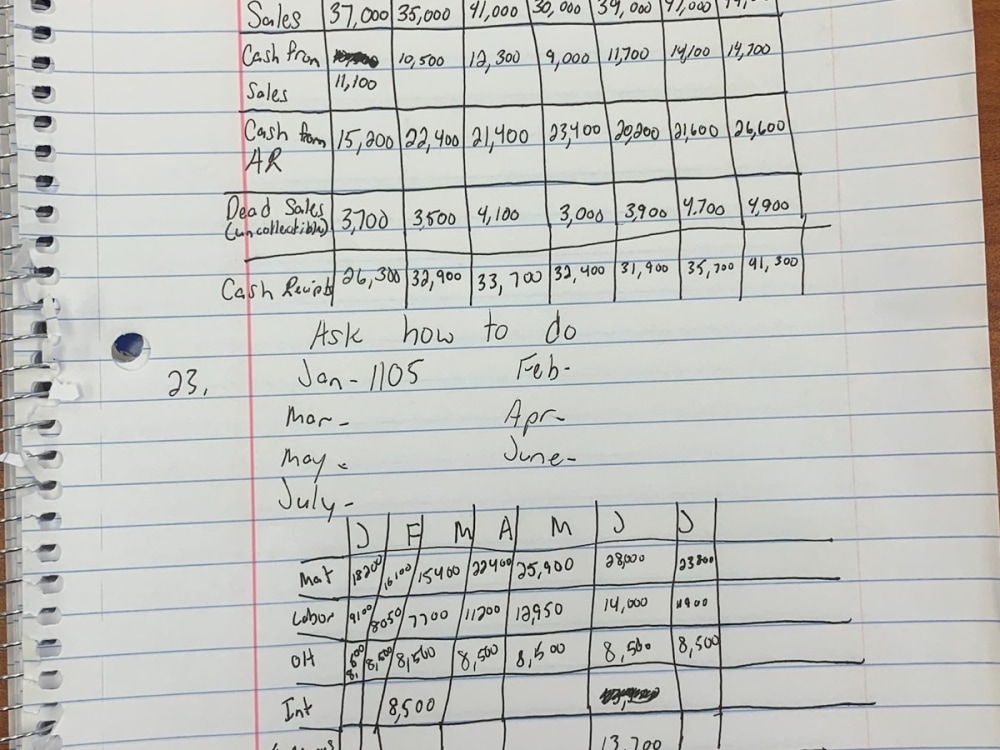 Sales 37,000 35,000 41,000 30,000 39,000 47,000
Cash from 10,500 12,300 9,000 11,700 14,100 14,700
Sales 11,100
Cash from 15,200 22,400 21,400 23,400 20,200 21,600 26,600
AR
Dead Sales 3,700 3,500 4,100 3,000 3,900 4,700 4,900
(uncollectible)
Cash Reciepts 26,300 32,900 33,700 32,400 31,900 35,700 41,300
Ask how to do
23. Jan - 1105 Feb -
Mar - Apr -
May - June -
July -
J F M A M J J
Mat 18200 16100 15400 22400 25,900 28,000 23800
Labor 9100 8050 7700 11200 12,950 14,000 11900
OH 8,500 8,500 8,500 8,500 8,500 8,500 8,500
Int 8,500
13,700